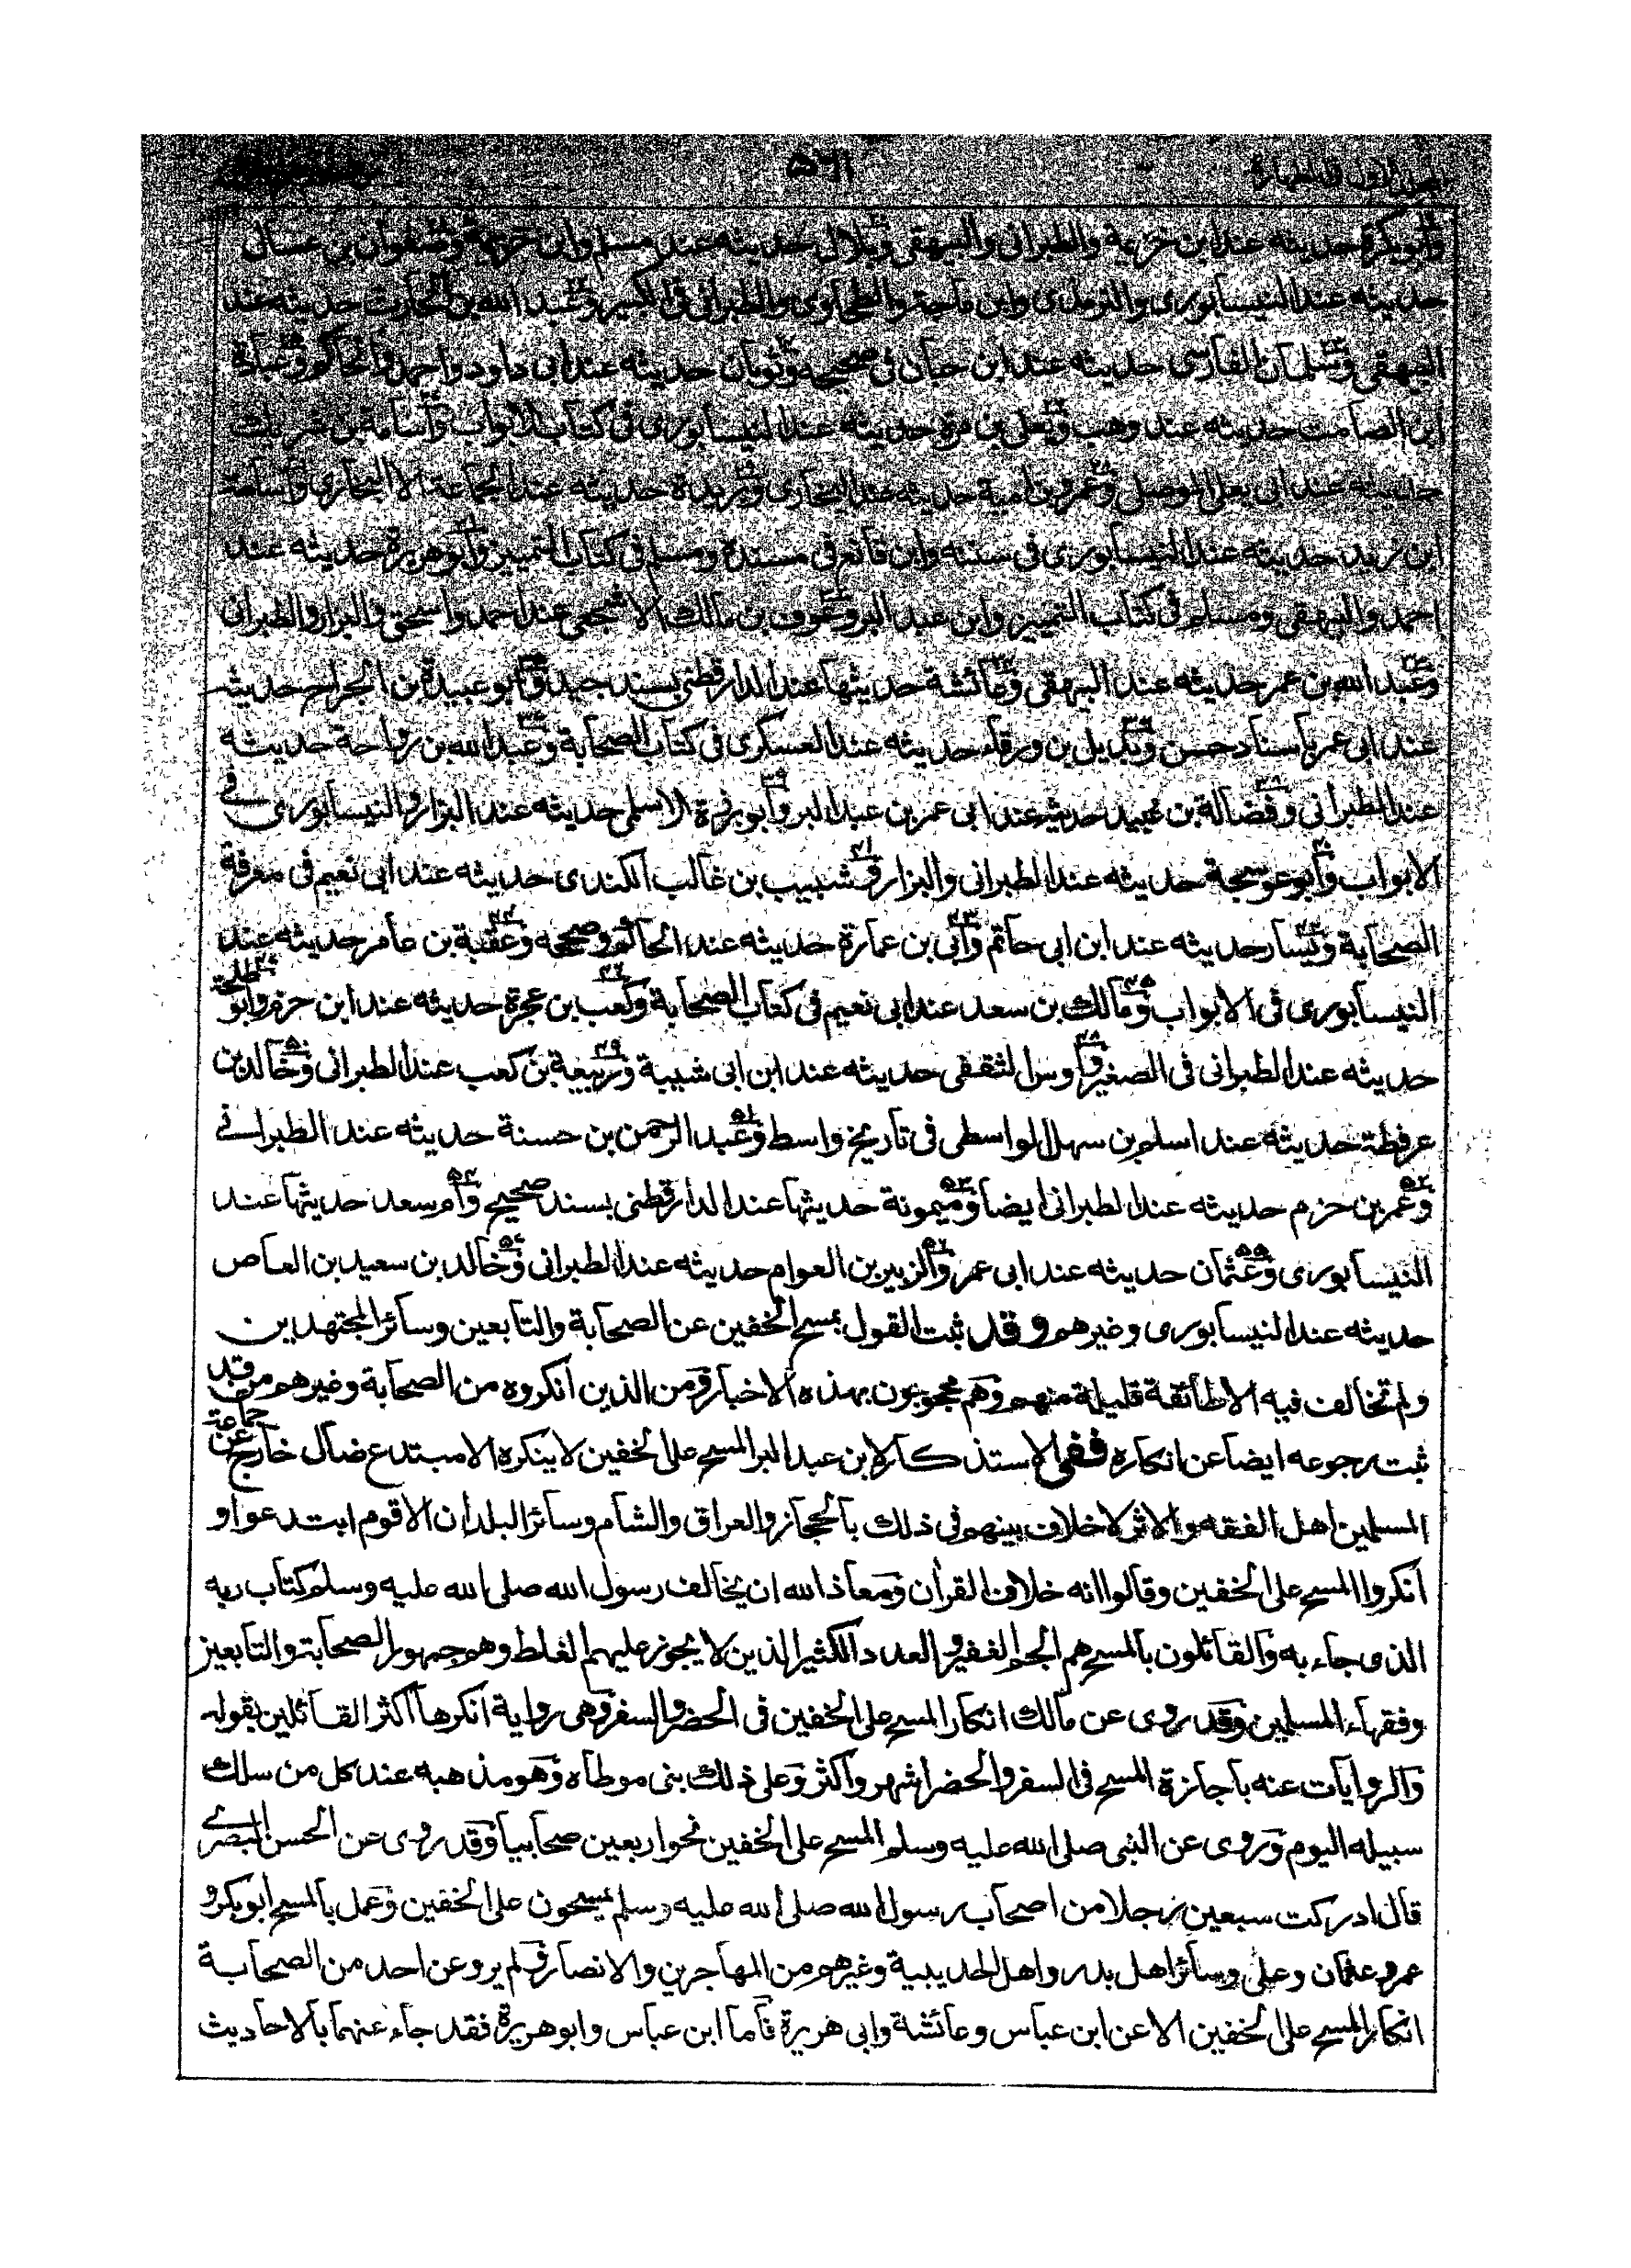 ٥٦١
وأبو بكرة حديثه عند ابن خزيمة والطبراني والبيهقي وبلال حديثه عند مسلم وابن خزيمة وصفوان بن عسال
حديثه عند النيسابوري والترمذي وابن ماجة والطحاوي والطبراني في الكبير وعبد الله بن الحارث حديثه عند
البيهقي وسلمان الفارسي حديثه عند ابن حبان في صحيحه وثوبان حديثه عند ابي داود واحمد والحاكم وعبادة
ابن الصامت حديثه عند وهب ويعلى بن مرة حديثه عند النيسابوري في كتاب الابواب وأسامة بن شريك
حديثه عند ابي يعلى الموصلي وعمرو بن امية حديثه عند البخاري وبريدة حديثه عند الجماعة الا البخاري وأسامة
ابن زيد حديثه عند النيسابوري في سننه وابن قانع في مسنده ومسلم في كتاب التمييز وأبو هريرة حديثه عند
احمد والبيهقي ومسلم في كتاب التمييز وابن عبد البر وعوف بن مالك الاشجعي عند احمد واسحق والبزار والطبراني
وعبد الله بن عمر حديثه عند البيهقي وعائشة حديثها عند الدارقطني بسند جيد وأبو عبيدة بن الجراح حديثه
عند ابي عمر بأسناد حسن وبديل بن ورقاء حديثه عند العسكري في كتاب الصحابة وعبد الله بن رواحة حديثه
عند الطبراني وفضالة بن عبيد حديثه عند ابي عمر بن عبد البر وأبو برزة الاسلمي حديثه عند البزار والنيسابوري في
الابواب وأبو عوسجة حديثه عند الطبراني والبزار وشبيب بن غالب الكندي حديثه عند ابي نعيم في معرفة
الصحابة ويسار حديثه عند ابن ابي حاتم وأبي بن عمارة حديثه عند الحاكم وصححه وعقبة بن عامر حديثه عند
النيسابوري في الابواب ومالك بن سعد عند ابي نعيم في كتاب الصحابة وكعب بن عجرة حديثه عند ابن حزم وأبو طلحة
حديثه عند الطبراني في الصغير وأوس الثقفي حديثه عند ابن ابي شيبة وربيعة بن كعب عند الطبراني وخالد بن
عرفطة حديثه عند اسلم بن سهل الواسطي في تاريخ واسط وعبد الرحمن بن حسنة حديثه عند الطبراني
وعمر بن حزم حديثه عند الطبراني ايضا وميمونة حديثها عند الدارقطني بسند صحيح وأم سعد حديثها عند
النيسابوري وعثمان حديثه عند ابي عمر والزبير بن العوام حديثه عند الطبراني وخالد بن سعيد بن العاص
حديثه عند النيسابوري وغيرهم وقد ثبت القول بمسح الخفين عن الصحابة والتابعين وسائر المجتهدين
ولم تخالف فيه الا طائفة قليلة منهم وهم محجوبون بهذه الاخبار ومن الذين انكروه من الصحابة وغيرهم من قد
ثبت رجوعه ايضا عن انكاره ففي الاستذكار لابن عبد البر المسح على الخفين لا ينكره الا مبتدع ضال خارج عن جماعة
المسلمين اهل الفقه والاثر لا خلاف بينهم في ذلك بالحجاز والعراق والشام وسائر البلدان الا قوم ابتدعوا و
انكروا المسح على الخفين وقالوا انه خلاف القرآن ومعاذ الله ان يخالف رسول الله صلى الله عليه وسلم كتاب ربه
الذي جاء به والقائلون بالمسح هم الجم الغفير والعدد الكثير الذين لا يجوز عليهم الغلط وهو جمهور الصحابة والتابعين
وفقهاء المسلمين وقد روي عن مالك انكار المسح على الخفين في الحضر والسفر وهي رواية انكرها اكثر القائلين بقوله
والروايات عنه بأجازة المسح في السفر والحضر اشهر واكثر وعلى ذلك بنى موطأه وهو مذهبه عند كل من سلك
سبيله اليوم وروي عن النبي صلى الله عليه وسلم المسح على الخفين نحو اربعين صحابيا وقد روي عن الحسن البصري
قال ادركت سبعين رجلا من اصحاب رسول الله صلى الله عليه وسلم يمسحون على الخفين وعمل بالمسح ابو بكر و
عمر وعثمان وعلي وسائر اهل بدر واهل الحديبية وغيرهم من المهاجرين والانصار ولم يرو عن احد من الصحابة
انكار المسح على الخفين الا عن ابن عباس وعائشة وابي هريرة فأما ابن عباس وابو هريرة فقد جاء عنهما بالاحاديث